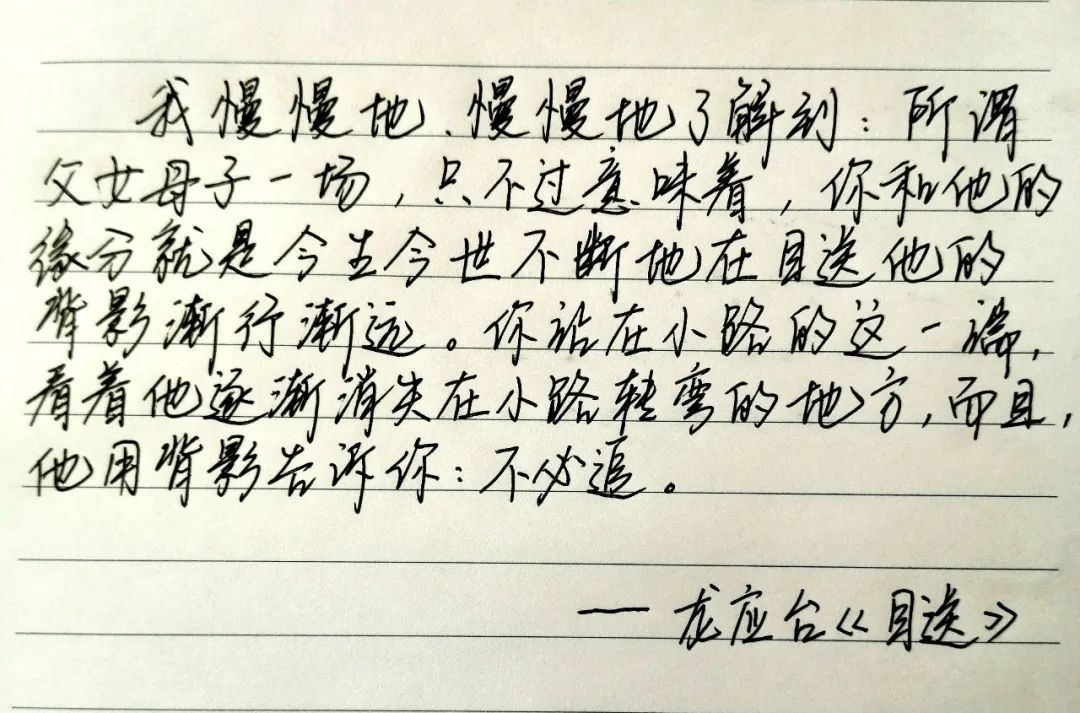 我慢慢地、慢慢地了解到：所谓
父女母子一场，只不过意味着，你和他的
缘分就是今生今世不断地在目送他的
背影渐行渐远。你站在小路的这一端，
看着他逐渐消失在小路转弯的地方，而且，
他用背影告诉你：不必追。
——龙应台《目送》